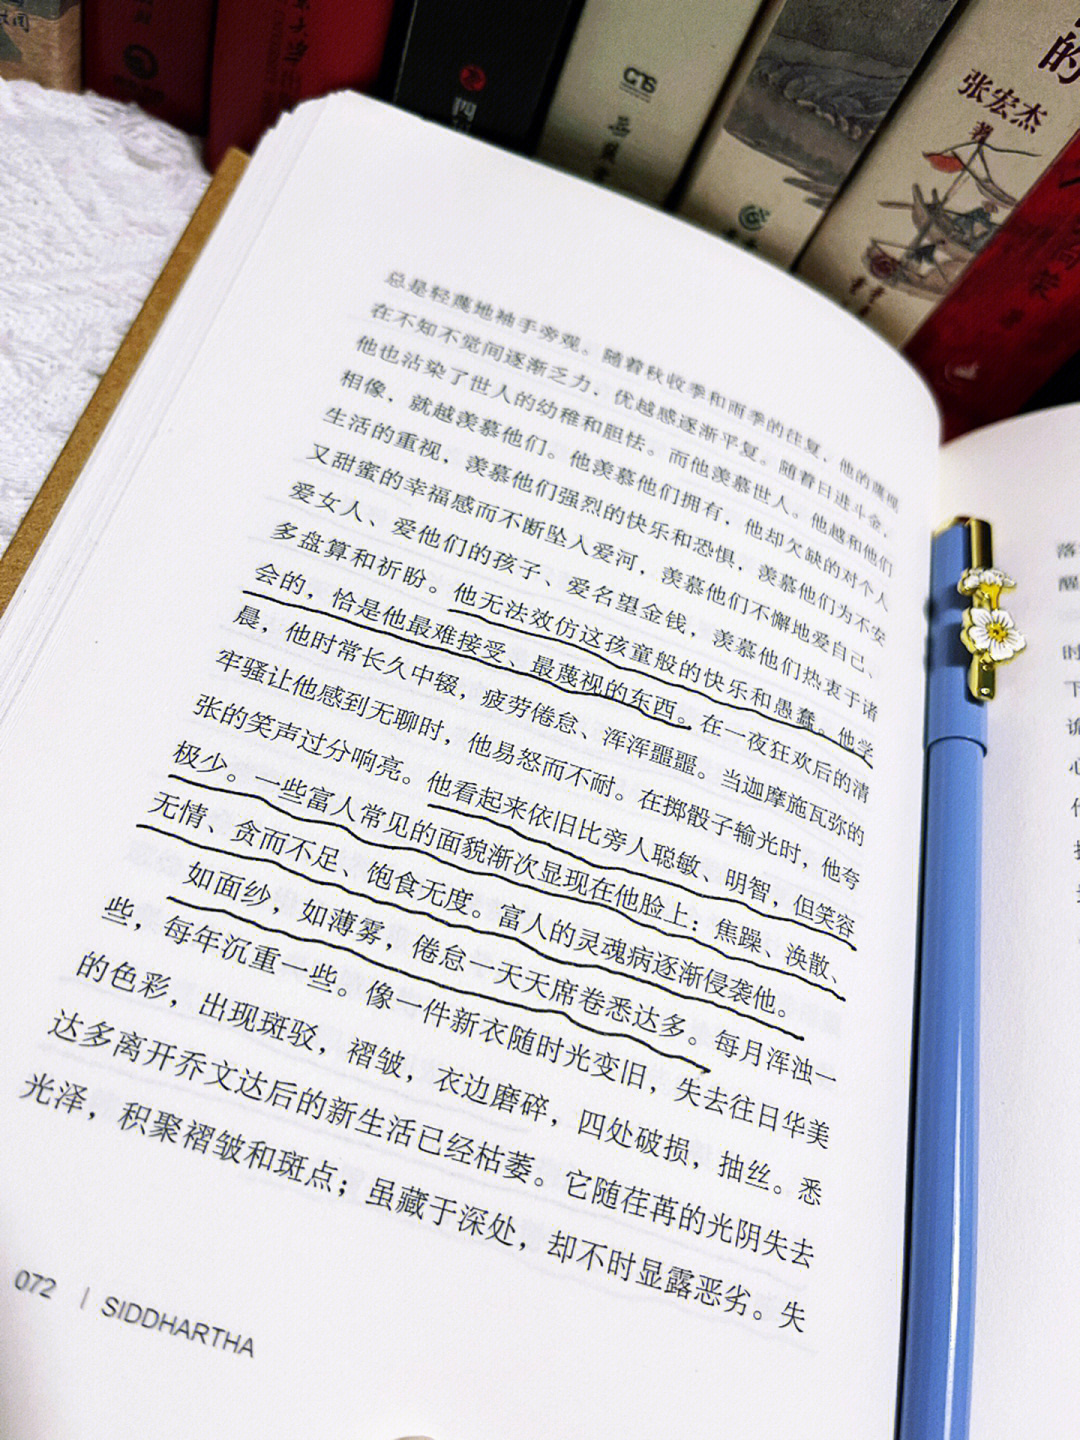 张宏杰
著
的
四
岳
荣
总是轻蔑地袖手旁观。随着秋收季和雨季的往复，他的蔑视
在不知不觉间逐渐乏力，优越感逐渐平复。随着日进斗金，
他也沾染了世人的幼稚和胆怯。而他羡慕世人。他越和他们
相像，就越羡慕他们。他羡慕他们拥有，他却欠缺的对个人
生活的重视，羡慕他们强烈的快乐和恐惧，羡慕他们为不安
又甜蜜的幸福感而不断坠入爱河，羡慕他们不懈地爱自己、
爱女人、爱他们的孩子、爱名望金钱，羡慕他们热衷于诸
多盘算和祈盼。他无法效仿这孩童般的快乐和愚蠢。他学
会的，恰是他最难接受、最蔑视的东西。在一夜狂欢后的清
晨，他时常长久中辍，疲劳倦怠、浑浑噩噩。当迦摩施瓦弥的
牢骚让他感到无聊时，他易怒而不耐。在掷骰子输光时，他夸
张的笑声过分响亮。他看起来依旧比旁人聪敏、明智，但笑容
极少。一些富人常见的面貌渐次显现在他脸上：焦躁、涣散、
无情、贪而不足、饱食无度。富人的灵魂病逐渐侵袭他。
如面纱，如薄雾，倦怠一天天席卷悉达多。每月浑浊一
些，每年沉重一些。像一件新衣随时光变旧，失去往日华美
的色彩，出现斑驳，褶皱，衣边磨碎，四处破损，抽丝。悉
达多离开乔文达后的新生活已经枯萎。它随荏苒的光阴失去
光泽，积聚褶皱和斑点；虽藏于深处，却不时显露恶劣。失
072 | SIDDHARTHA
落
醒
时
下
诡
心